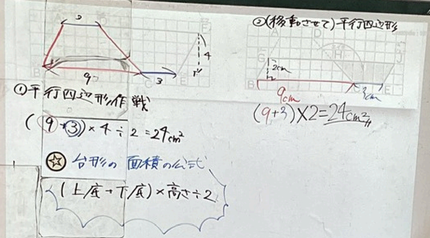 3
9
3
4
①平行四辺形作戦
(9+③)×4÷2=24cm²
☆台形の面積の公式
(上底+下底)×高さ÷2
②(移動させて)平行四辺形
A
D
B
2cm
9cm
3cm
(9+3)×2=24cm²